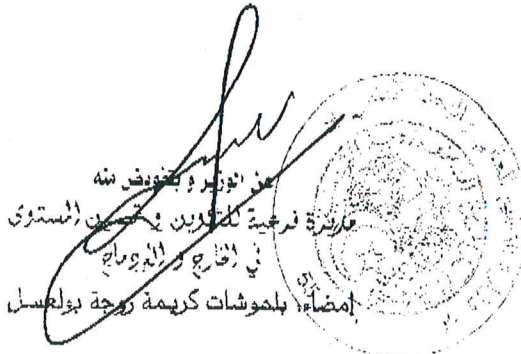 عن الوزير و بتفويض منه
مديرة فرعية للتكوين و تحسين المستوى
في الخارج و الإدماج
إمضاء: بلهوشات كريمة زوجة بولعسل